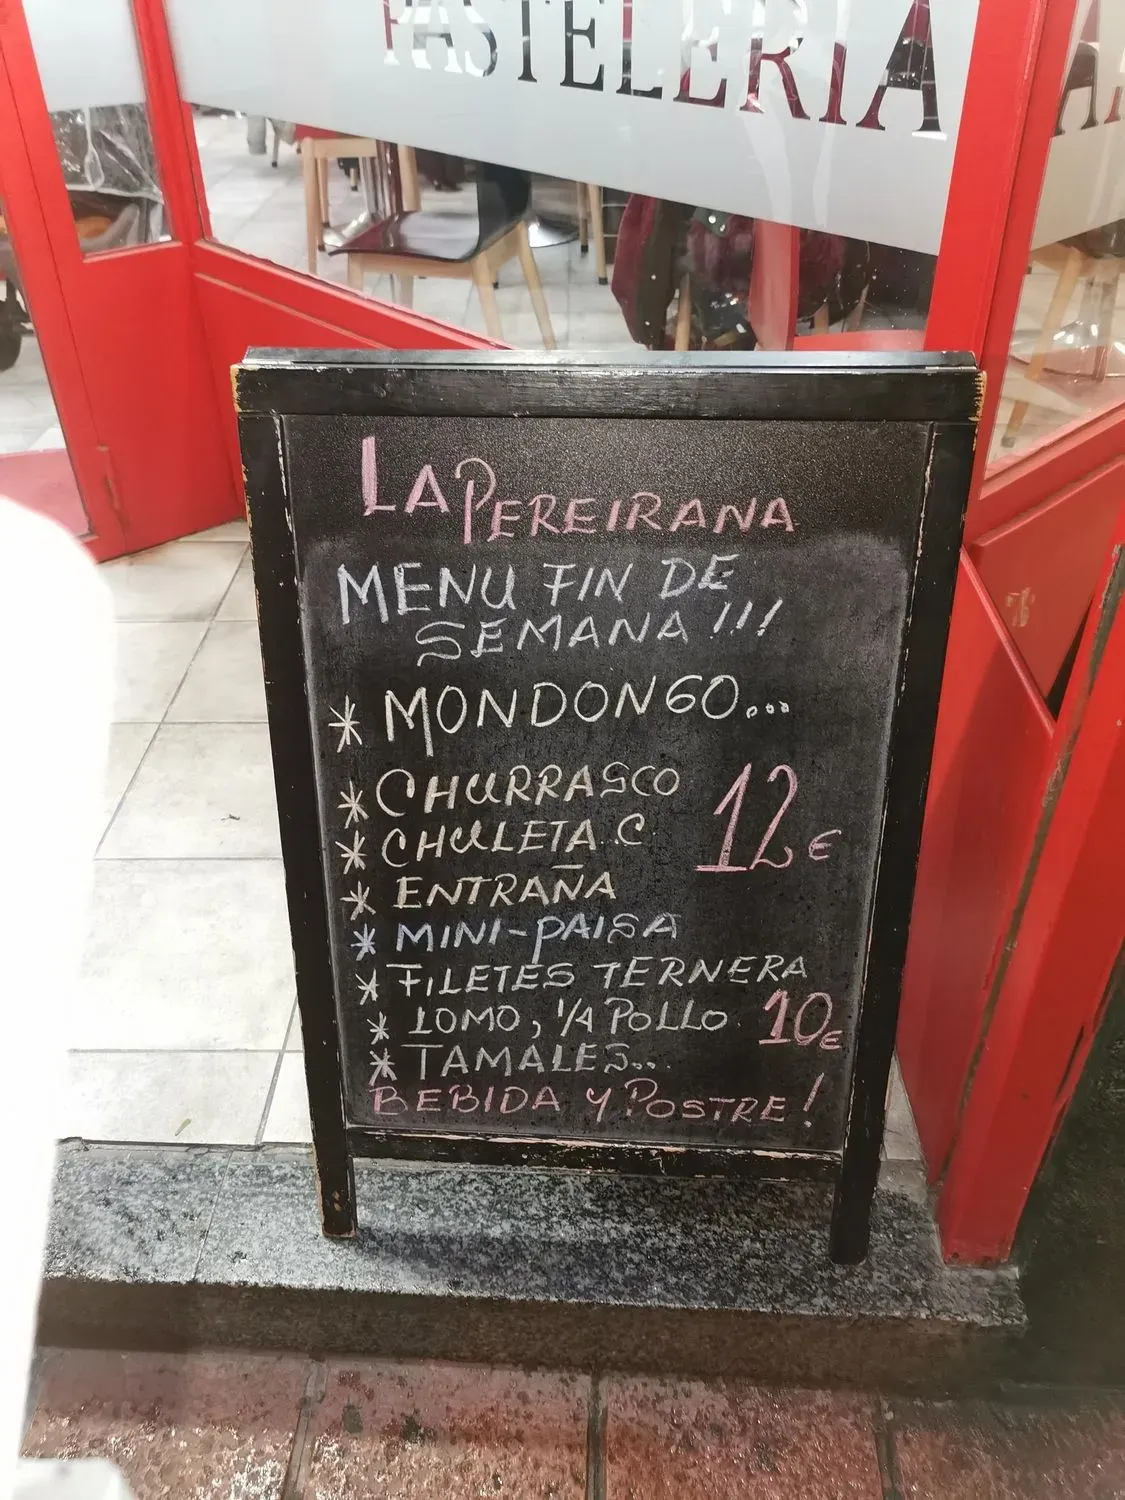 PASTELERIA
LA PEREIRANA
MENU FIN DE
SEMANA!!!
* MONDONGO...
* CHURRASCO
12€
* CHULETA.C
* ENTRAÑA
* MINI-PAISA
* FILETES TERNERA
* LOMO, 1/4 POLLO 10€
* TAMALES...
BEBIDA Y POSTRE!